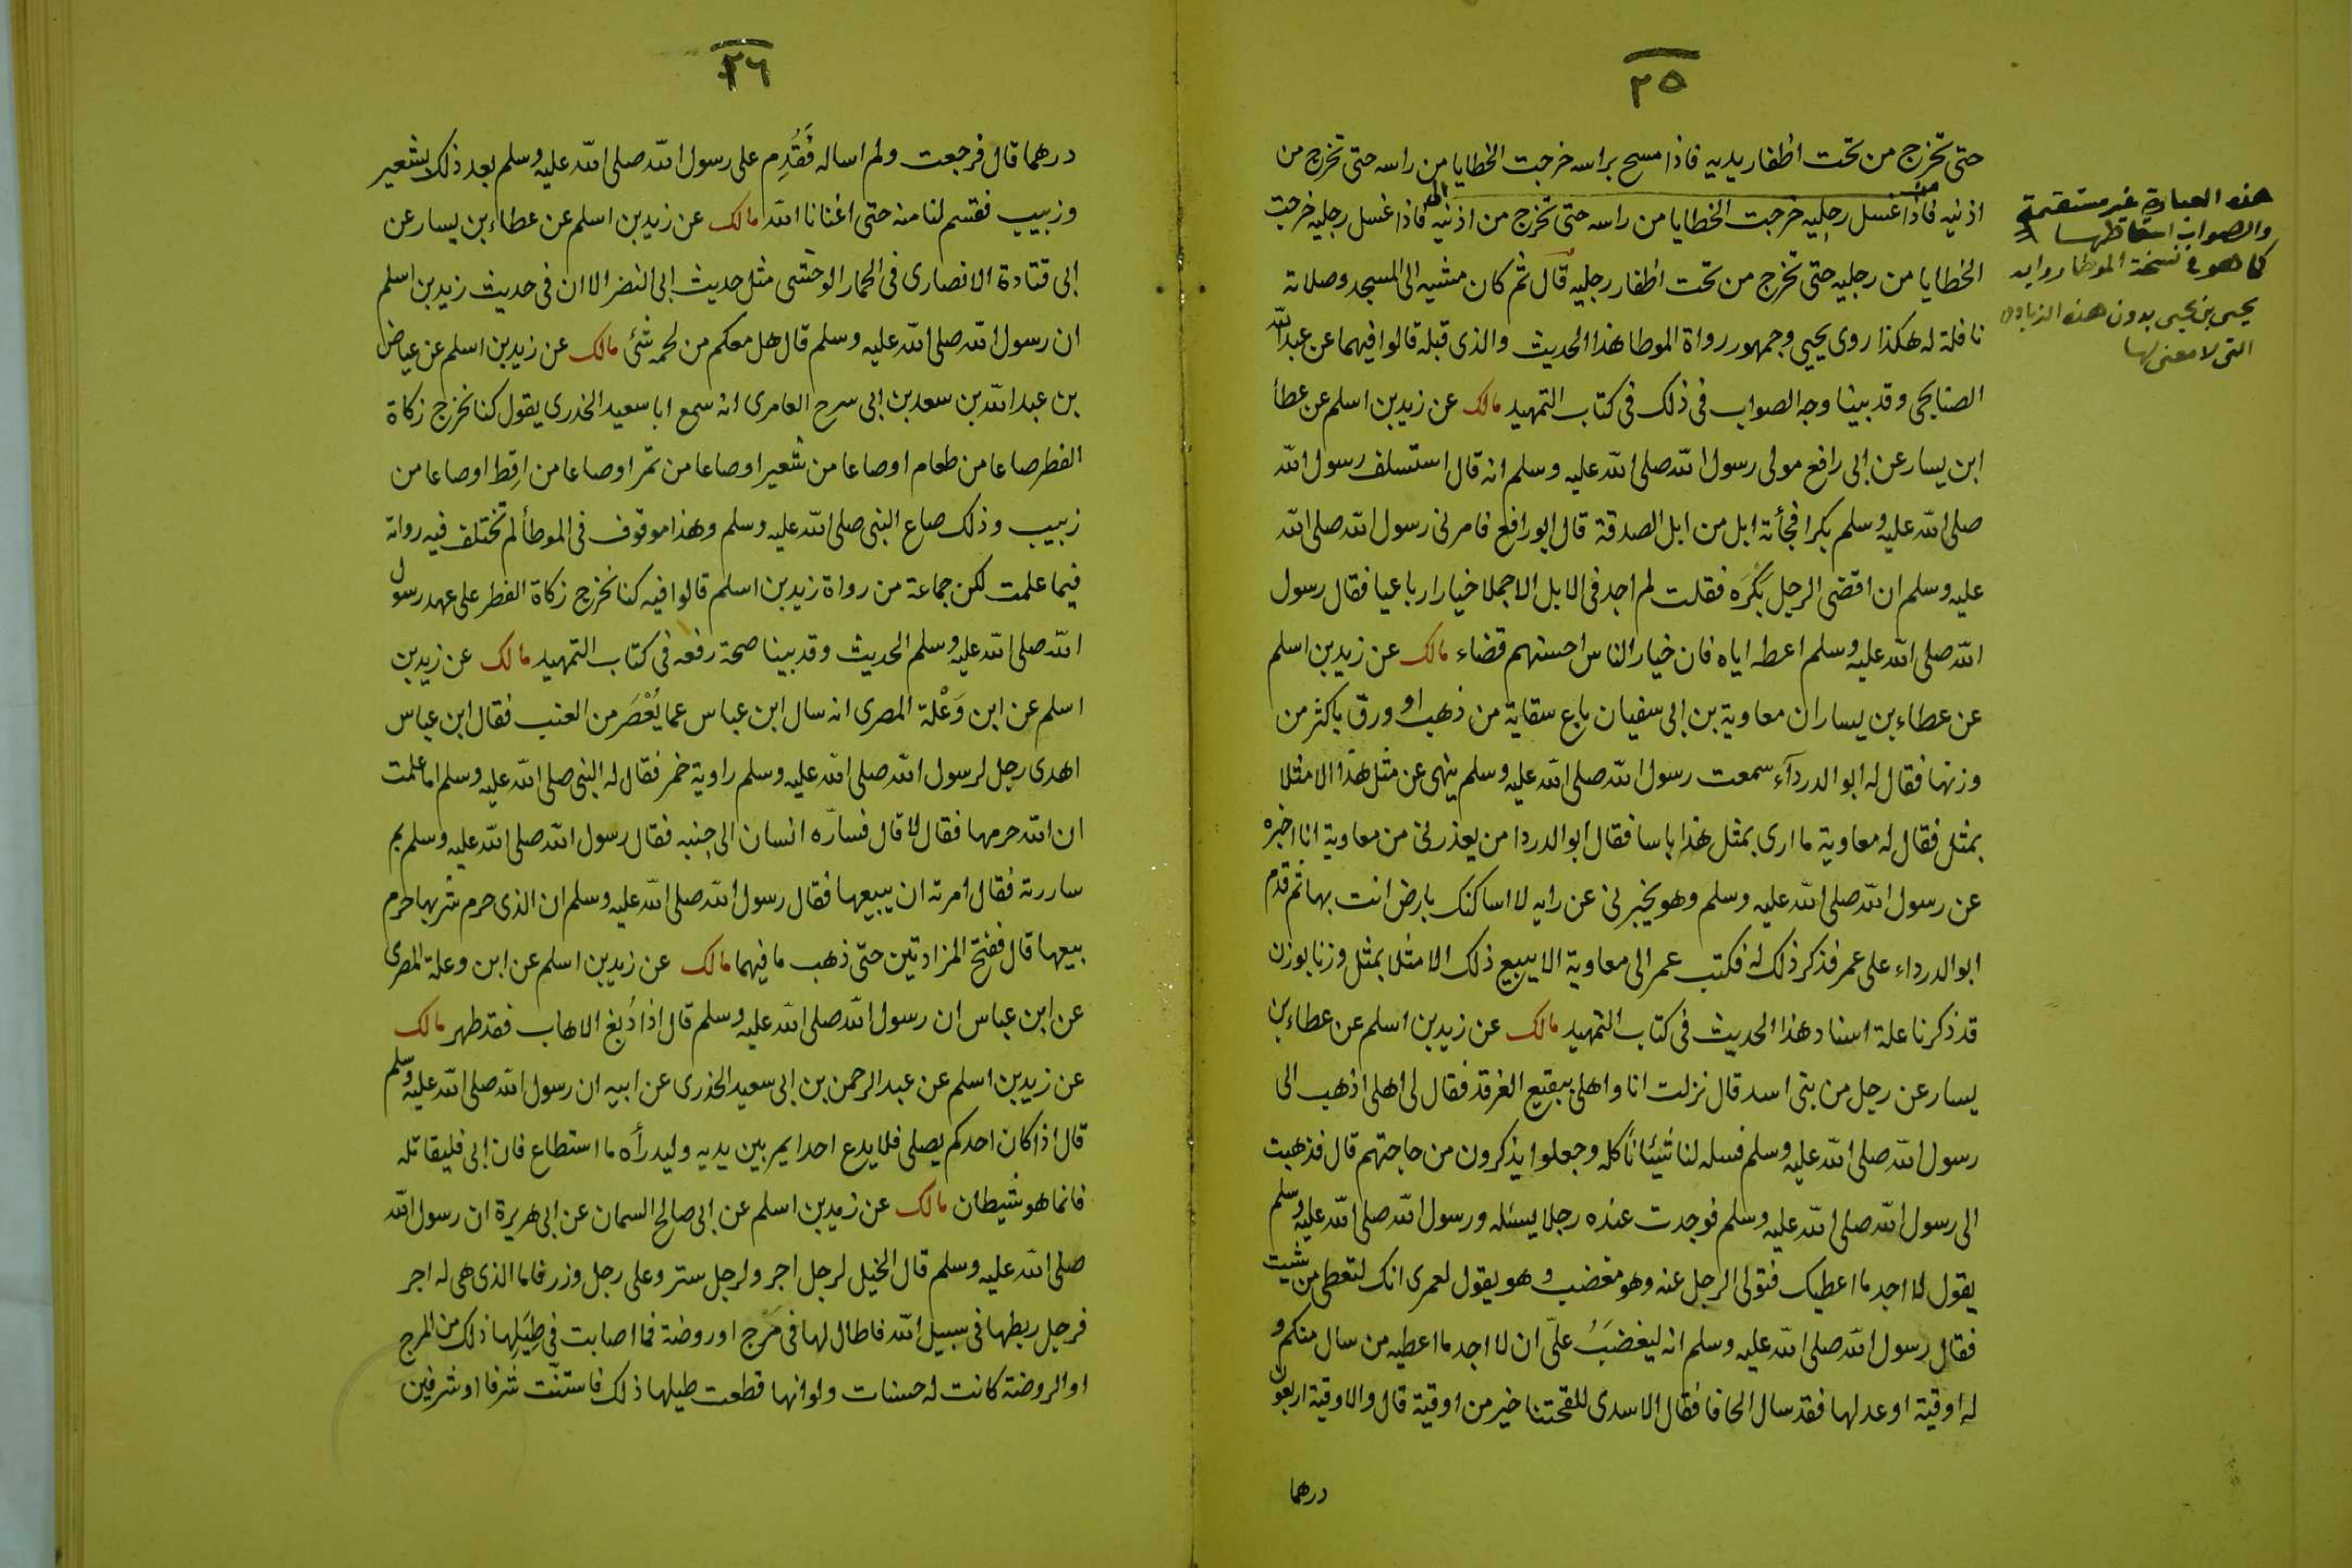 ٢٥
حتى تخرج من تحت اظفار يديه فاذا مسح براسه خرجت الخطايا من راسه حتى تخرج من
اذنيه فاذا غسل رجليه خرجت الخطايا من راسه حتى تخرج من اذنيه فاذا غسل رجليه خرجت
من
الى
الخطايا من رجليه حتى تخرج من تحت اظفار رجليه قال ثم كان مشيه الى المسجد وصلاته
نافلة له هكذا روى يحيى وجمهور رواة الموطا هذا الحديث والذى قبله قالوا فيهما عن عبد الله
الصنابحى وقد بينا وجه الصواب فى ذلك فى كتاب التمهيد مالك عن زيد بن اسلم عن عطأ
ابن يسار عن ابى رافع مولى رسول الله صلى الله عليه وسلم انه قال استسلف رسول الله
صلى الله عليه وسلم بكرا فجأته ابل من ابل الصدقة قال ابو رافع فامرنى رسول الله صلى الله
عليه وسلم ان اقضى الرجل بَكْرَه فقلت لم اجد فى الابل الا جملا خيارا رباعيا فقال رسول
الله صلى الله عليه وسلم اعطه اياه فان خيار الناس احسنهم قضاء مالك عن زيد بن اسلم
عن عطاء بن يسار ان معاوية بن ابى سفيان باع سقاية من ذهب او ورق باكثر من
وزنها فقال له ابو الدردآء سمعت رسول الله صلى الله عليه وسلم ينهى عن مثل هذا الا مثلا
بمثل فقال له معاوية ما ارى بمثل هذا باسا فقال ابو الدردا من يعذرنى من معاوية انا اخبره
عن رسول الله صلى الله عليه وسلم وهو يخبرنى عن رايه لا اساكنك بارض انت بها ثم قدم
ابو الدرداء على عمر فذكر ذلك له فكتب عمر الى معاوية الا يبيع ذلك الا مثلا بمثل وزنا بوزن
قد ذكرنا علة اسناد هذا الحديث فى كتاب التمهيد مالك عن زيد بن اسلم عن عطاء بن
يسار عن رجل من بنى اسد قال نزلت انا واهلى ببقيع الغرقد فقال لى اهلى اذهب الى
رسول الله صلى الله عليه وسلم فسله لنا شيئا نأكله وجعلوا يذكرون من حاجتهم قال فذهبت
الى رسول الله صلى الله عليه وسلم فوجدت عنده رجلا يسئله ورسول الله صلى الله عليه وسلم
يقول لا اجد ما اعطيك فتولى الرجل عنه وهو مغضب وهو يقول لعمرى انك لتعطى من شيت
فقال رسول الله صلى الله عليه وسلم انه ليغضَبُ علىّ ان لا اجد ما اعطيه من سال منكم و
له اوقية او عدلها فقد سال الحافا فقال الاسدى للقحتنا خير من اوقية قال والاوقية اربعون
درهما
هذه العبارة غير مستقيمة
والصواب اسقاطها
كما هو فى نسخة الموطا رواية
يحيى بن يحيى بدون هذه الزيادة
التى لا معنى لها
٢٦
درهما قال فرجعت ولم اساله فَقُدِم على رسول الله صلى الله عليه وسلم بعد ذلك بشعير
وزبيب فقسم لنا منه حتى اغنانا الله مالك عن زيد بن اسلم عن عطاء بن يسار عن
ابى قتادة الانصارى فى الحمار الوحشى مثل حديث ابى النضر الا ان فى حديث زيد بن اسلم
ان رسول الله صلى الله عليه وسلم قال هل معكم من لحمه شئ مالك عن زيد بن اسلم عن عياض
بن عبد الله بن سعد بن ابى سرح العامرى انه سمع ابا سعيد الخدرى يقول كنا نخرج زكاة
الفطر صاعا من طعام او صاعا من شعير او صاعا من تمر او صاعا من اقِط او صاعا من
زبيب وذلك صاع النبى صلى الله عليه وسلم وهذا موقوف فى الموطأ لم تختلف فيه رواته
فيما علمت لكن جماعة من رواة زيد بن اسلم قالوا فيه كنا نخرج زكاة الفطر على عهد رسول
الله صلى الله عليه وسلم الحديث وقد بينا صحة رفعه فى كتاب التمهيد مالك عن زيد بن
اسلم عن ابن وَعْلة المصرى انه سال ابن عباس عما يُعْصَر من العنب فقال ابن عباس
اهدى رجل لرسول الله صلى الله عليه وسلم راوية خمر فقال له النبى صلى الله عليه وسلم اما علمت
ان الله حرمها فقال لا قال فسارّه انسان الى جنبه فقال رسول الله صلى الله عليه وسلم بم
ساررته فقال امرته ان يبيعها فقال رسول الله صلى الله عليه وسلم ان الذى حرم شربها حرم
بيعها قال ففتح المزادتين حتى ذهب ما فيهما مالك عن زيد بن اسلم عن ابن وعلة المصرى
عن ابن عباس ان رسول الله صلى الله عليه وسلم قال اذا دُبغ الاهاب فقد طهر مالك
عن زيد بن اسلم عن عبد الرحمن بن ابى سعيد الخدرى عن ابيه ان رسول الله صلى الله عليه وسلم
قال اذا كان احدكم يصلى فلا يدع احدا يمر بين يديه وليدرأه ما استطاع فان ابى فليقاتله
فانما هو شيطان مالك عن زيد بن اسلم عن ابى صالح السمان عن ابى هريرة ان رسول الله
صلى الله عليه وسلم قال الخيل لرجل اجر ولرجل ستر وعلى رجل وزر فاما الذى هى له اجر
فرجل ربطها فى سبيل الله فاطال لها فى مَرج او روضة فما اصابت فى طِيَلِها ذلك من المرج
او الروضة كانت له حسنات ولو انها قطعت طيلها ذلك فاستنّت شرفا او شرفين